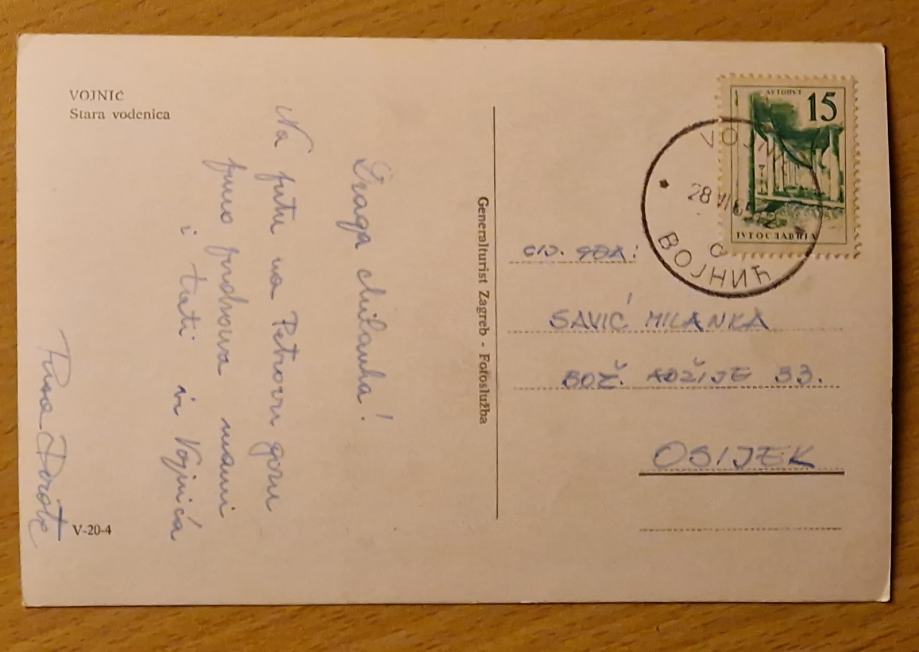 VOJNIĆ
Stara vodenica
Draga Milanka!
Na putu na Petrovu goru
puno pozdrava mami
i tati iz Vojnića
V-20-4
Generalturist Zagreb - Fotoslužba
АУТОПУТ
15
ЈУГОСЛАВИЈА
VOJNIĆ
28 VI
ВОЈНИЋ
SAVIĆ MILANKA
BOŽ. ADŽIJE 33.
OSIJEK